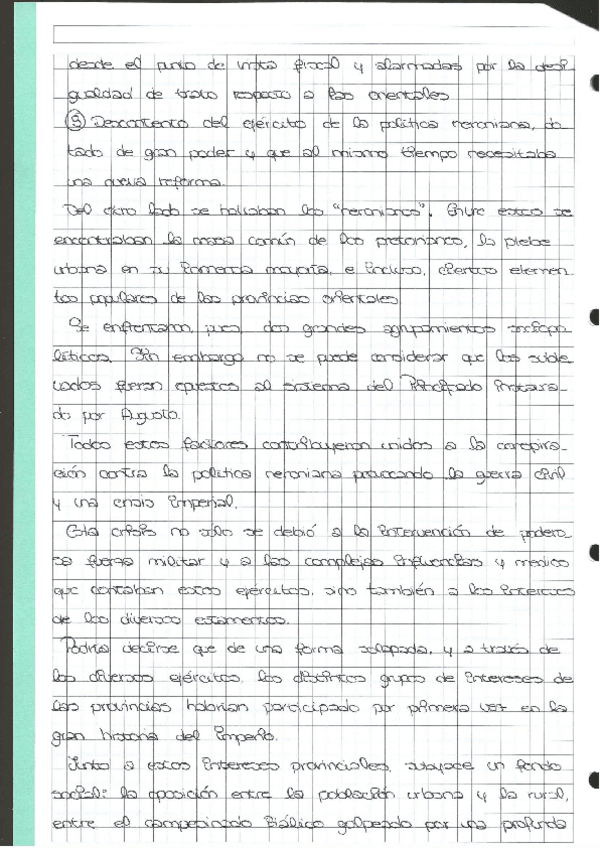 desde el punto de vista fiscal y alarmadas por la desi
gualdad de trato respecto a los orientales
⑤ Descontento del ejército de la política neroniana, do
tado de gran poder y que al mismo tiempo necesitaba
una nueva reforma.
Del otro lado se hallaban los "neronianos". Entre estos se
encontraban la masa común de los pretorianos, la plebe
urbana en su inmensa mayoría, e incluso, ciertos elemen
tos populares de las provincias orientales
Se enfrentaron, pues, dos grandes agrupamientos sociopo
líticos. Sin embargo no se puede considerar que los suble
vados fueran opuestos al sistema del Principado instaura-
do por Augusto.
Todos estos factores contribuyeron unidos a la conspira-
ción contra la política neroniana provocando la guerra civil
y una crisis imperial.
Esta crisis no sólo se debió a la intervención de podero
sa fuerza militar y a las complejas influencias y medios
que contaban estos ejércitos, sino también a los intereses
de los diversos estamentos.
Podría decirse que de una forma solapada, y a través de
los diversos ejércitos, los distintos grupos de intereses de
las provincias habrían participado por primera vez en la
gran historia del Imperio.
Junto a estos intereses provinciales, subyace un fondo
social: la oposición entre la población urbana y la rural,
entre el campesinado itálico golpeado por una profunda